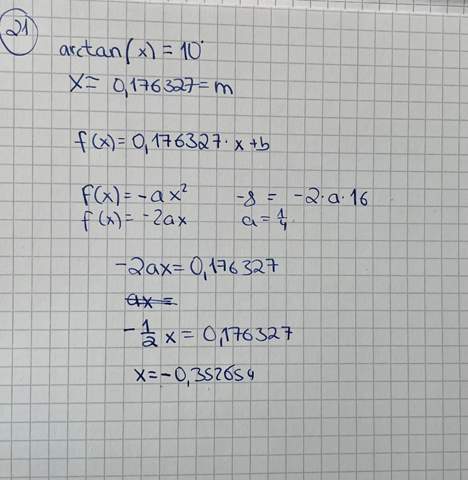 21
arctan(x) = 10°
x = 0,176327 = m
f(x) = 0,176327 · x + b
f(x) = -ax² -8 = -2·a·16
f'(x) = -2ax a = 1/4
-2ax = 0,176327
ax =
-1/2 x = 0,176327
x = -0,352654